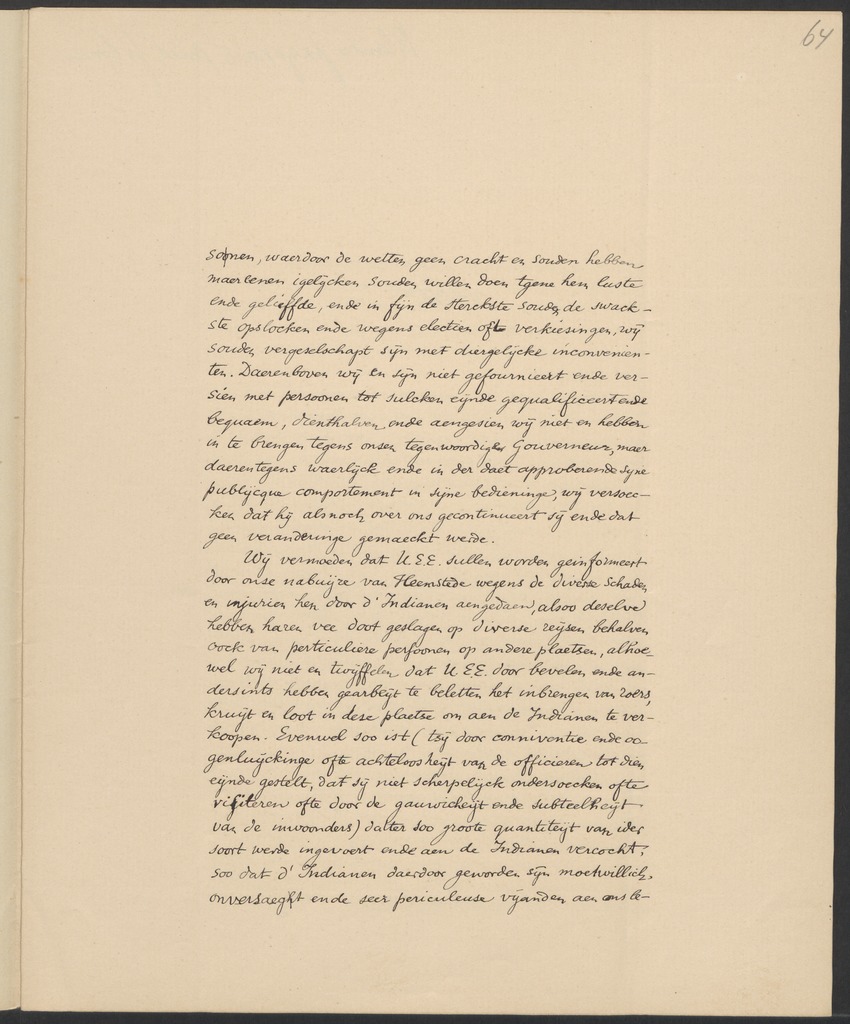 64
soonen, waerdoor de wetten geen cracht en souden hebben
maer eenen igelÿcken souden willen doen tgene hem luste
ende gelieffde, ende in fÿn de sterckste souden de swack-
ste opslocken ende wegens electien ofte verkiesingen, wÿ
souden vergeselschapt sÿn met diergelÿcke inconvenien-
ten. Daerenboven wÿ en sÿn niet gefournieert ende ver-
sien met persoonen tot sulcken eÿnde gequalificeert ende
bequaem, dienthalven ende aengesien wÿ niet en hebben
in te brengen tegens onsen tegenwoordigen Gouverneur, maer
daerentegens waerlÿck ende in der daet approberende sÿne
publÿcque comportement in sÿne bedieninge, wÿ versoec-
ken dat hÿ alsnoch over ons gecontinueert sÿ ende dat
geen veranderinge gemaeckt werde.
Wÿ vermoeden dat U.E.E. sullen worden geinformeert
door onse nabuÿre van Heemstede wegens de diverse schaden
en injurien hen door d'Indianen aengedaen, alsoo deselve
hebben haren vee doot geslagen op diverse reÿsen behalven
oock van perticuliere persoonen op andere plaetsen, alhoe-
wel wÿ niet en twÿffelen dat U.E.E. door bevelen ende an-
dersints hebben gearbeÿt te beletten het inbrengen van roers,
kruÿt en loot in dese plaetse om aen de Indianen te ver-
koopen. Evenwel soo ist (tzÿ door conniventie ende oo-
genluÿckinge ofte achteloosheÿt van de officieren tot dien
eÿnde gestelt, dat sÿ niet scherpelÿck ondersoecken ofte
visiteren ofte door de gauwicheÿt ende subteelheÿt
van de inwoonders) datter soo groote quantiteÿt van ider
soort werde ingevoert ende aen de Indianen vercocht,
soo dat d'Indianen daerdoor geworden sÿn moetwillich,
onversaeght ende seer periculeuse vÿanden aen ons le-